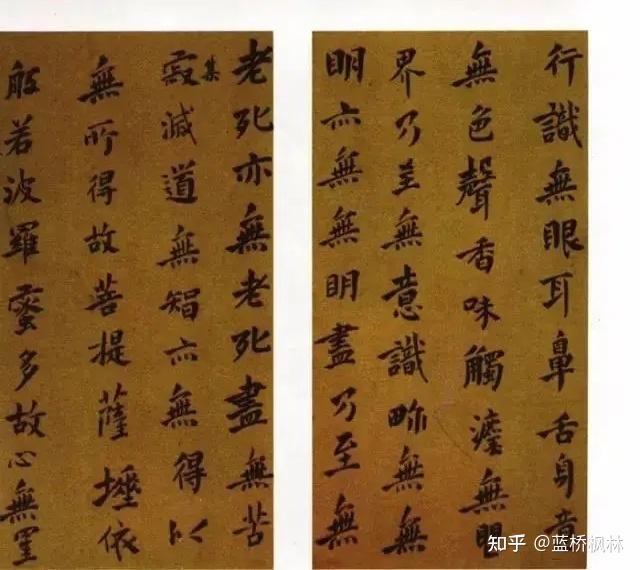 行識無眼耳鼻舌身意
無色聲香味觸灋無眼
界乃至無意識畍無無
明亦無無明盡乃至無
老死亦無老死盡無苦
集
寂滅道無智亦無得以
無所得故菩提薩埵依
般若波羅蜜多故心無罣
知乎 @蓝桥枫林